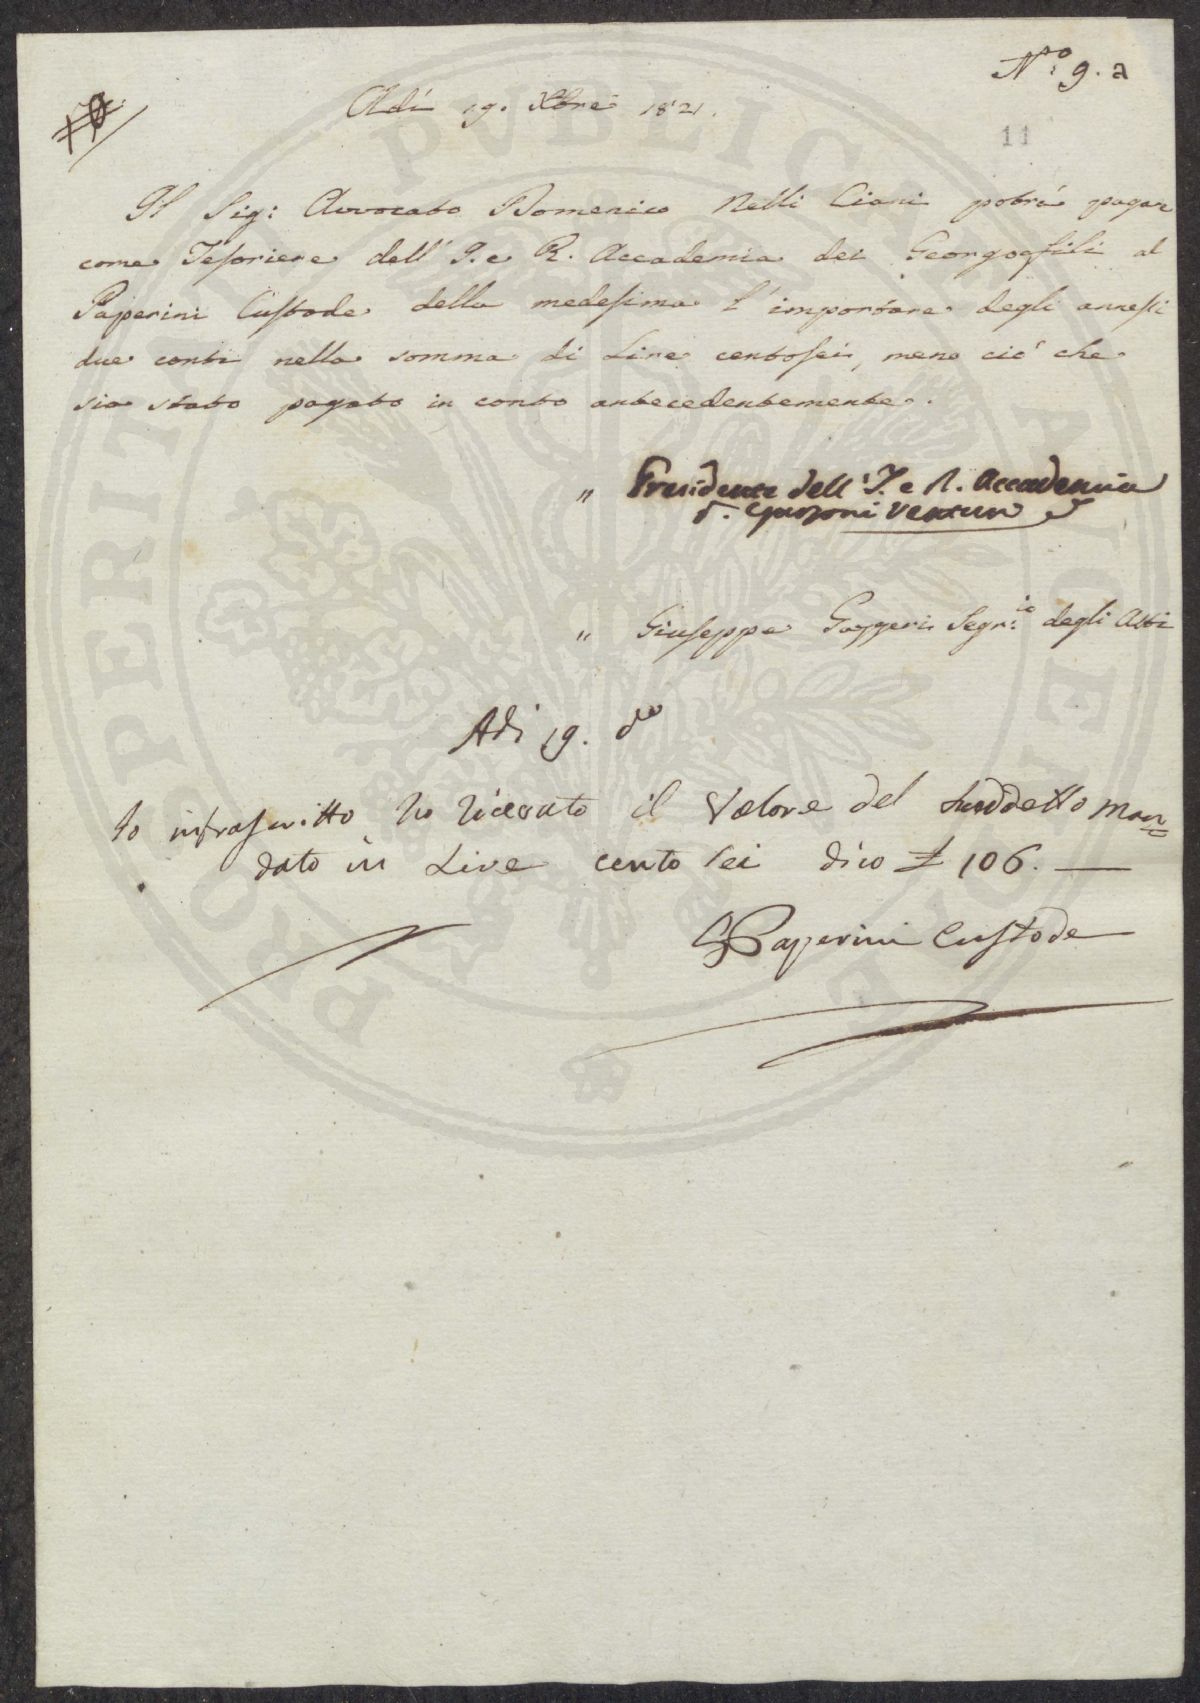 N.º 9. a
11
Adí 19. Xbre 1821.
Il Sig: Avvocato Domenico Nelli Ciani potrá pagar
come Tesoriere dell' I. e R. Accademia dei Georgofili al
Paperini Custode della medesima l'importare degli annessi
due conti nella somma di Lire centosei, meno ció che
sia stato pagato in conto antecedentemente.
" Presidente dell' I. e R. Accademia
Garzoni Venturi
" Giuseppe Gazzeri Segr:io degli Atti
Adi 19. do
Io infrascritto ho ricevuto il Valore del suddetto Man=
dato in Lire cento sei dico £ 106. —
Paperini Custode
PROSPERITATI PUBLICAE AUGENDAE